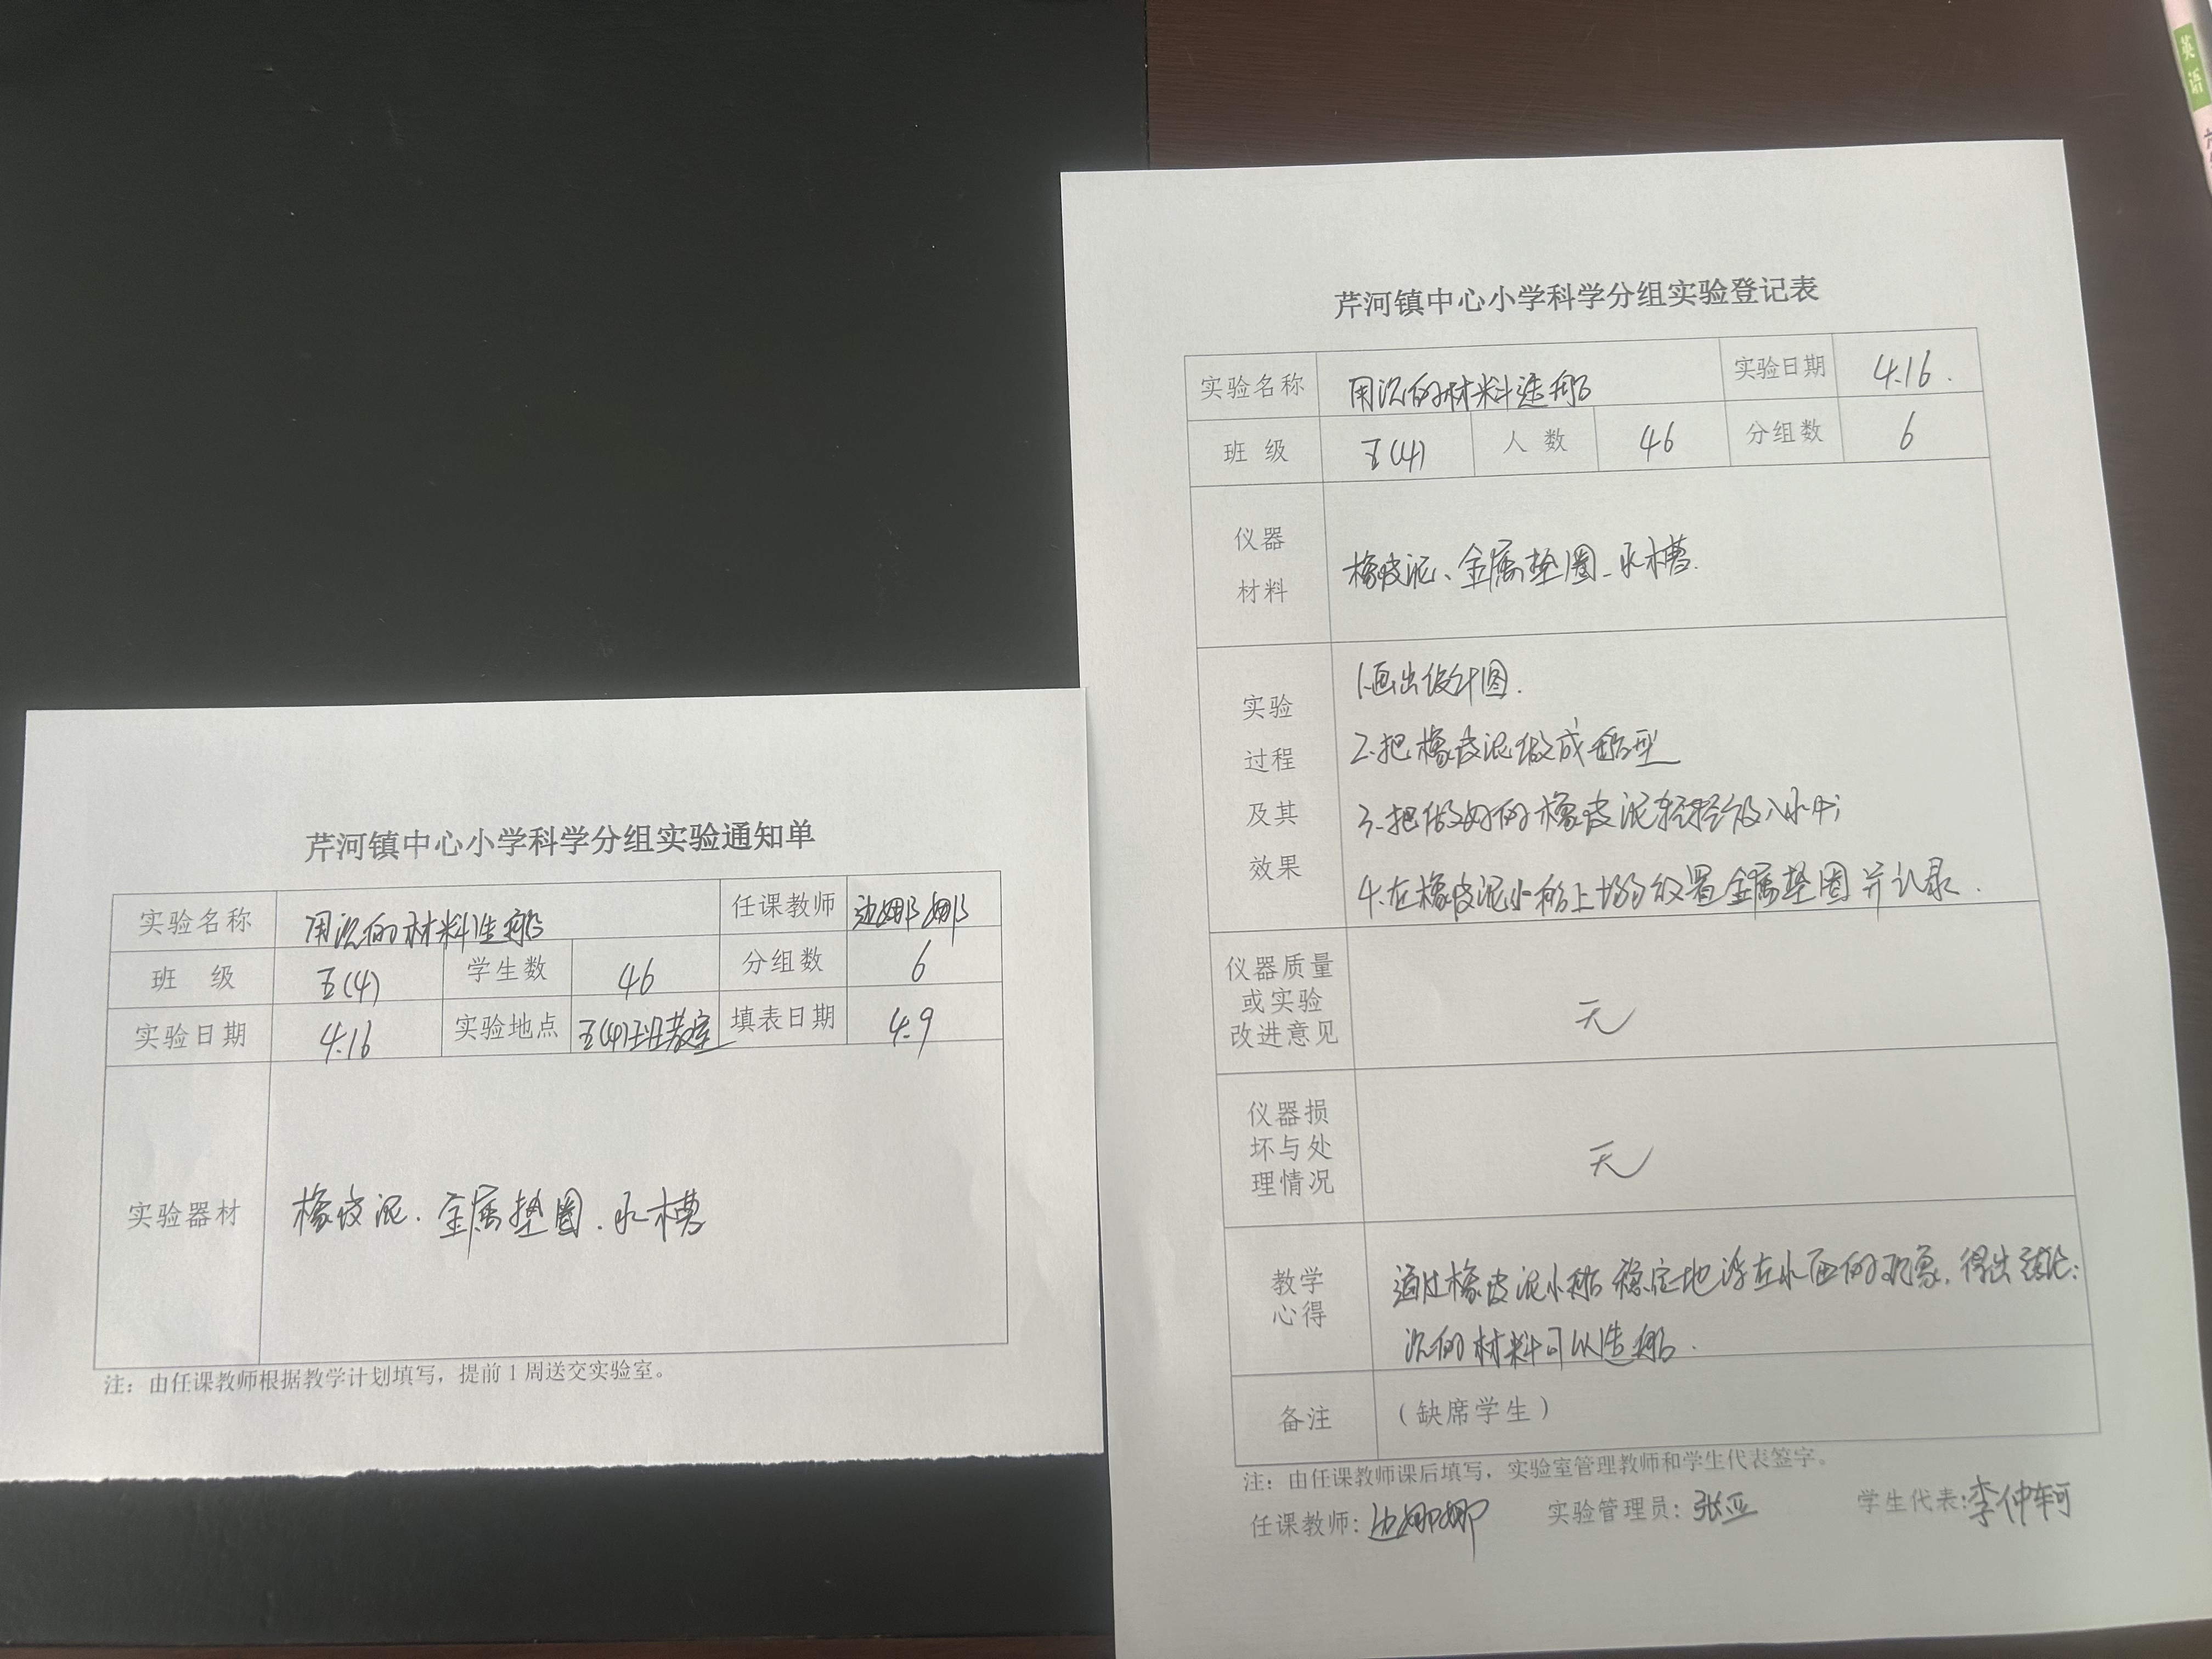 芹河镇中心小学科学分组实验通知单
实验名称 用沉的材料造船 任课教师 边娜娜
班 级 五(4) 学生数 46 分组数 6
实验日期 4.16 实验地点 五(4)班教室 填表日期 4.9
实验器材 橡皮泥、金属垫圈、水槽
注：由任课教师根据教学计划填写，提前1周送交实验室。
芹河镇中心小学科学分组实验登记表
实验名称 用沉的材料造船 实验日期 4.16.
班 级 五(4) 人 数 46 分组数 6
仪器
材料
橡皮泥、金属垫圈、水槽.
实验
过程
及其
效果
1.画出设计图.
2.把橡皮泥做成船型
3.把做好的橡皮泥轻轻放入水中;
4.在橡皮泥小船上均匀放置金属垫圈并记录.
仪器质量
或实验
改进意见
无
仪器损
坏与处
理情况
无
教学
心得
通过橡皮泥小船稳定地浮在水面的现象，得出结论：
沉的材料可以造船.
备注 （缺席学生）
注：由任课教师课后填写，实验室管理教师和学生代表签字。
任课教师：边娜娜 实验管理员：张亚 学生代表：李仲轲
英语